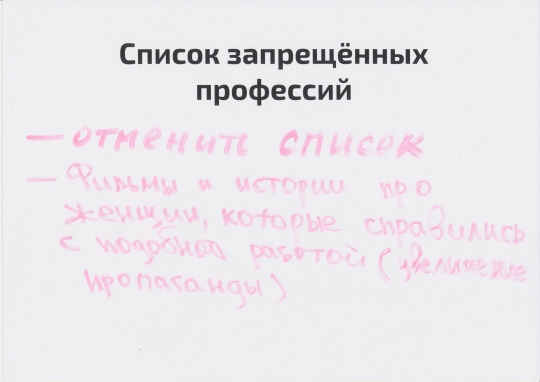 Список запрещённых
профессий
— отменить список
— Фильмы и истории про
женщин, которые справились
с подобной работой (увеличение
пропаганды)